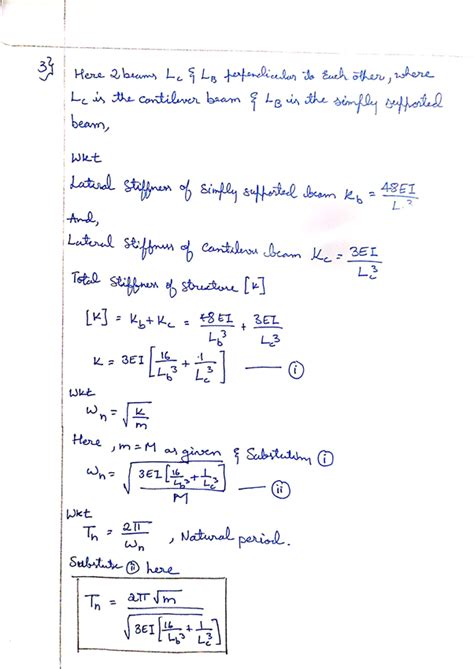 3}
Here 2 beams Lc & LB perpendicular to Each other, where
Lc is the cantilever beam & LB is the simply supported
beam,
Wkt
Lateral stiffness of simply supported beam Kb = 48EI/L³
And,
Lateral stiffness of cantilever beam Kc = 3EI/Lc³
Total stiffness of structure [K]
[K] = Kb + Kc = 48EI/Lb³ + 3EI/Lc³
K = 3EI [16/Lb³ + 1/Lc³] —— (i)
Wkt
ωn = √(K/m)
Here, m = M as given & Substituting (i)
ωn = √(3EI [16/Lb³ + 1/Lc³]/M) —— (ii)
Wkt
Tn = 2π/ωn , Natural period.
Substitute (ii) here
Tn = 2π√m/√(3EI [16/Lb³ + 1/Lc³])